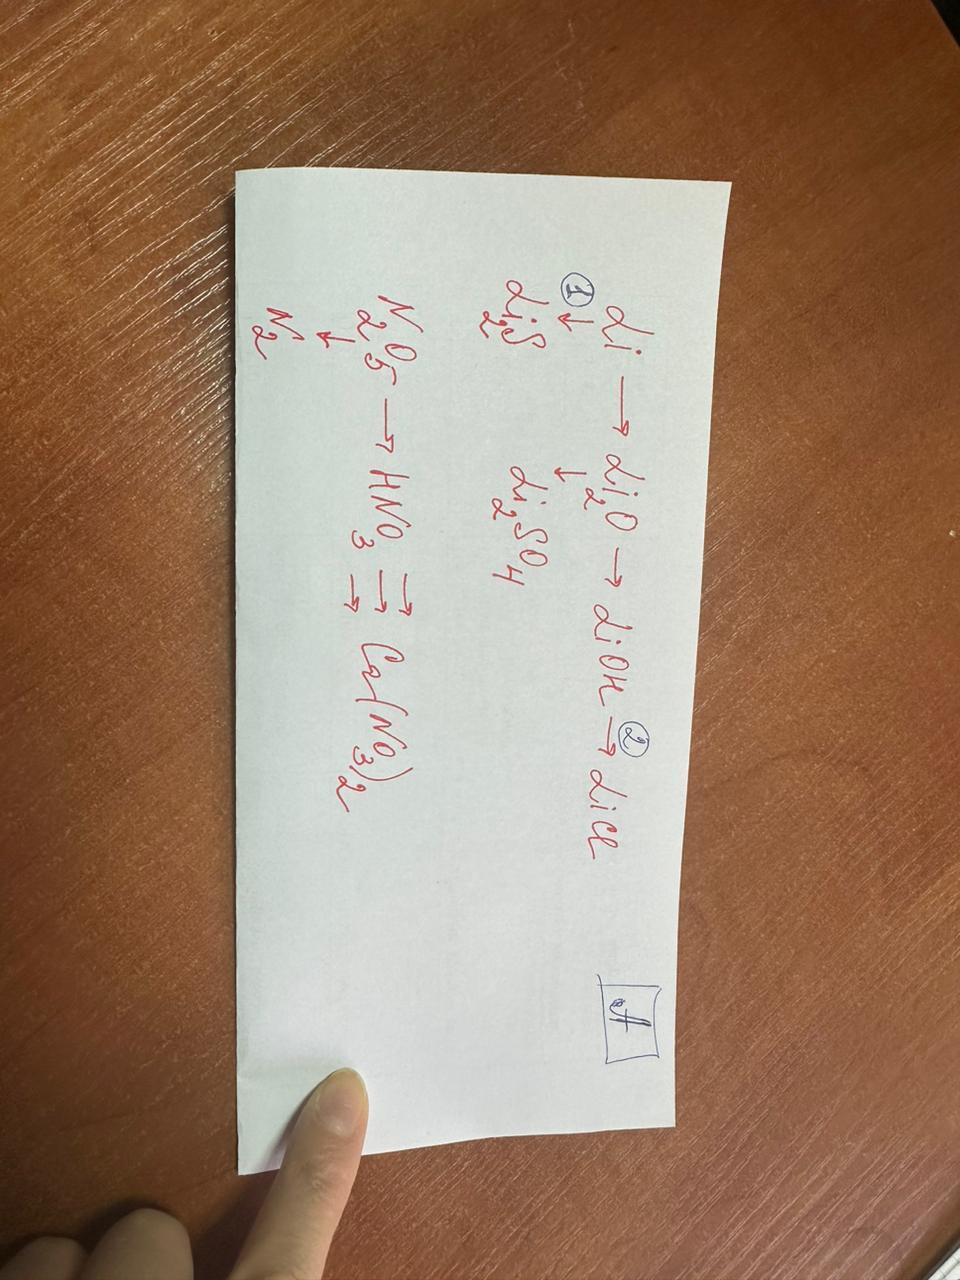 Li → Li2O → LiOH →② LiCl
①↓ ↓
Li2S Li2SO4
N2O5 → HNO3 →→→ Ca(NO3)2
↓
N2
A